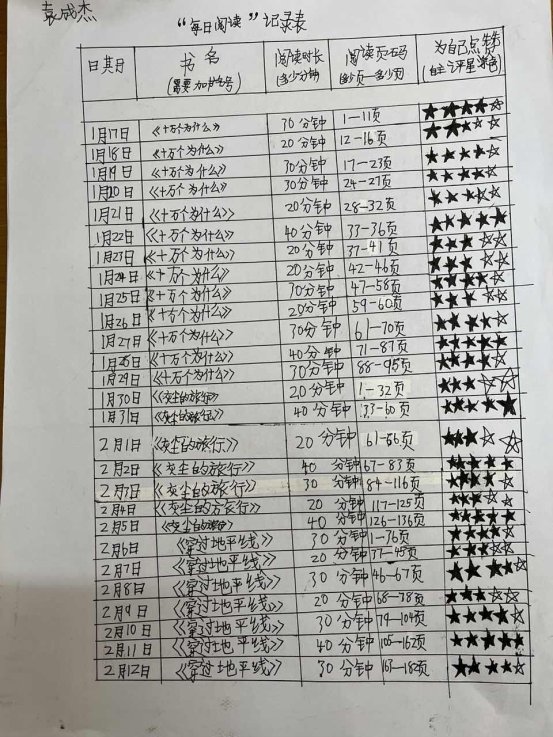 袁成杰
“每日阅读”记录表
日期 书名 阅读时长 阅读页码 为自己点赞
(需要加书名号) (多少分钟) (多少页—多少页) (自主评星涂色)
1月17日 《十万个为什么》 30分钟 1—11页 ★★★★☆
1月18日 《十万个为什么》 20分钟 12—16页 ★★★☆☆
1月19日 《十万个为什么》 30分钟 17—23页 ★★★★☆
1月20日 《十万个为什么》 30分钟 24—27页 ★★★★☆
1月21日 《十万个为什么》 20分钟 28—32页 ★★★☆☆
1月22日 《十万个为什么》 40分钟 33—36页 ★★★★★
1月23日 《十万个为什么》 20分钟 37—41页 ★★★☆☆
1月24日 《十万个为什么》 20分钟 42—46页 ★★★☆☆
1月25日 《十万个为什么》 30分钟 47—58页 ★★★★☆
1月26日 《十万个为什么》 20分钟 59—60页 ★★★☆☆
1月27日 《十万个为什么》 30分钟 61—70页 ★★★★☆
1月28日 《十万个为什么》 40分钟 71—87页 ★★★★★
1月29日 《十万个为什么》 30分钟 88—95页 ★★★★☆
1月30日 《灰尘的旅行》 20分钟 1—32页 ★★★☆☆
1月31日 《灰尘的旅行》 40分钟 33—60页 ★★★★★
2月1日 《灰尘的旅行》 20分钟 61—66页 ★★★☆☆
2月2日 《灰尘的旅行》 40分钟 67—83页 ★★★★★
2月3日 《灰尘的旅行》 30分钟 84—116页 ★★★★☆
2月4日 《灰尘的旅行》 20分钟 117—125页 ★★★☆☆
2月5日 《灰尘的旅行》 40分钟 126—136页 ★★★★★
2月6日 《穿过地平线》 30分钟 1—36页 ★★★★☆
2月7日 《穿过地平线》 20分钟 37—45页 ★★★☆☆
2月8日 《穿过地平线》 30分钟 46—67页 ★★★★☆
2月9日 《穿过地平线》 20分钟 68—78页 ★★★☆☆
2月10日 《穿过地平线》 30分钟 79—104页 ★★★★☆
2月11日 《穿过地平线》 40分钟 105—162页 ★★★★★
2月12日 《穿过地平线》 30分钟 163—182页 ★★★★☆